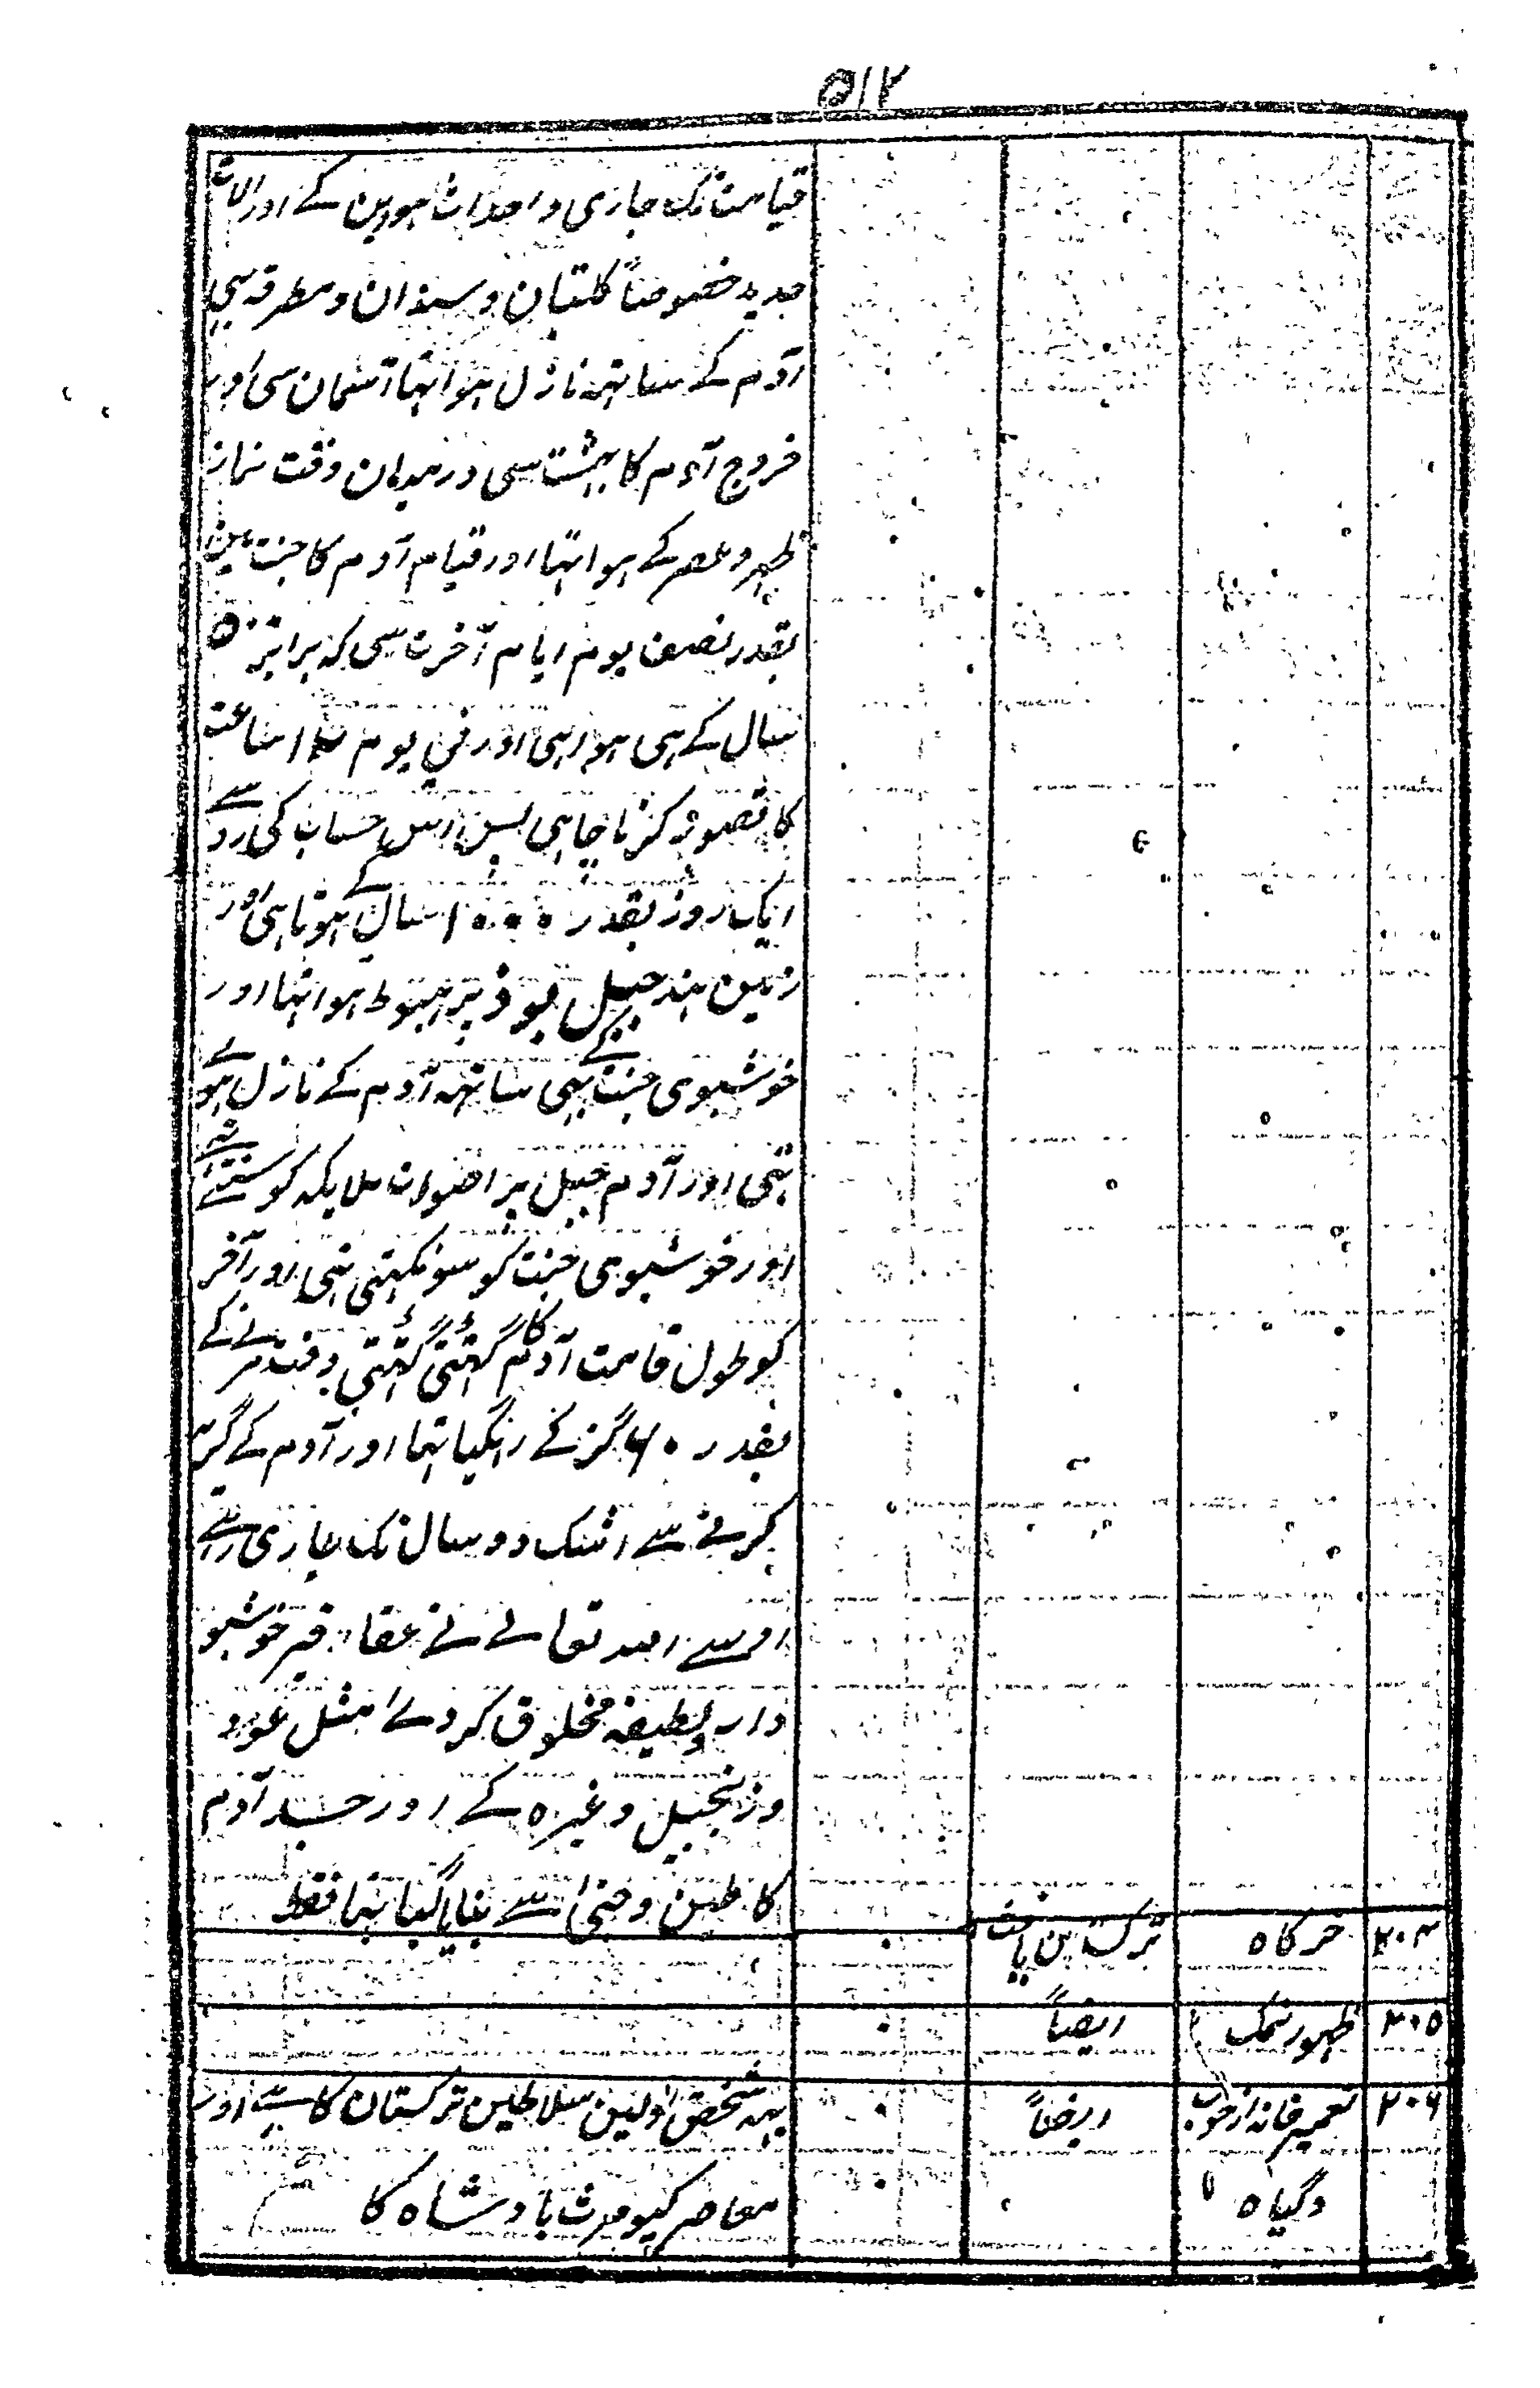 ۵۱۲
قیامت تک جاری و احداث ہوہین کے اور الات
جدید خصوصاً کلتبان و سندان و مطرقہ سی
آدم کے ساتہہ نازل ہوا تہا آسمان سی اور
خروج آدم کا بہشت سی درمیان وقت نماز
ظہر و عصر کے ہوا تہا اور قیام آدم کا جنت مین
بقدر نصف یوم ایام آخرت سی کہ برابر ۵۰۰
سال کے ہی ہوا ہی اور فی یوم ۱۲ ساعت
کا تصور کرنا چاہی پس اس حساب کی رو سے
ایک روز بقدر ۱۰۰۰ سال کے ہوتا ہی اور
زمین ہند جبل بوذ پر ہبوط ہوا تہا اور
خوشبوی جنت کے بہی ساتہہ آدم کے نازل ہوئے
تہی اور آدم جبل پر اصوات ملایکہ کو سنتے تہے
اور خوشبوی جنت کو سونگہتی تہی اور آخر
کو طول قامت آدم کا گہٹتی گہٹتی وقت مرنے کے
بقدر ۶۰ گز کے رہگیا تہا اور آدم کے گریہ
کرنے سے اشک دو سال تک جاری رہتے
اوس سے اللہ تعالے نے عقاقیر خوشبو
دار و لطیفہ مخلوق کر دے امثل عود
و زنجبیل و غیرہ کے اور جسد آدم
کا طین وحتی سے بنایا گیا تہا فقط
۲۰۴ خرکاہ ترک بن یافث
۲۰۵ ظہور نمک ایضاً
۲۰۶ تعمیر خانہ از چوب ایضاً یہہ شخص اولین سلاطین ترکستان کا ہے اور
وگیاہ معاصر کیومرث بادشاہ کا